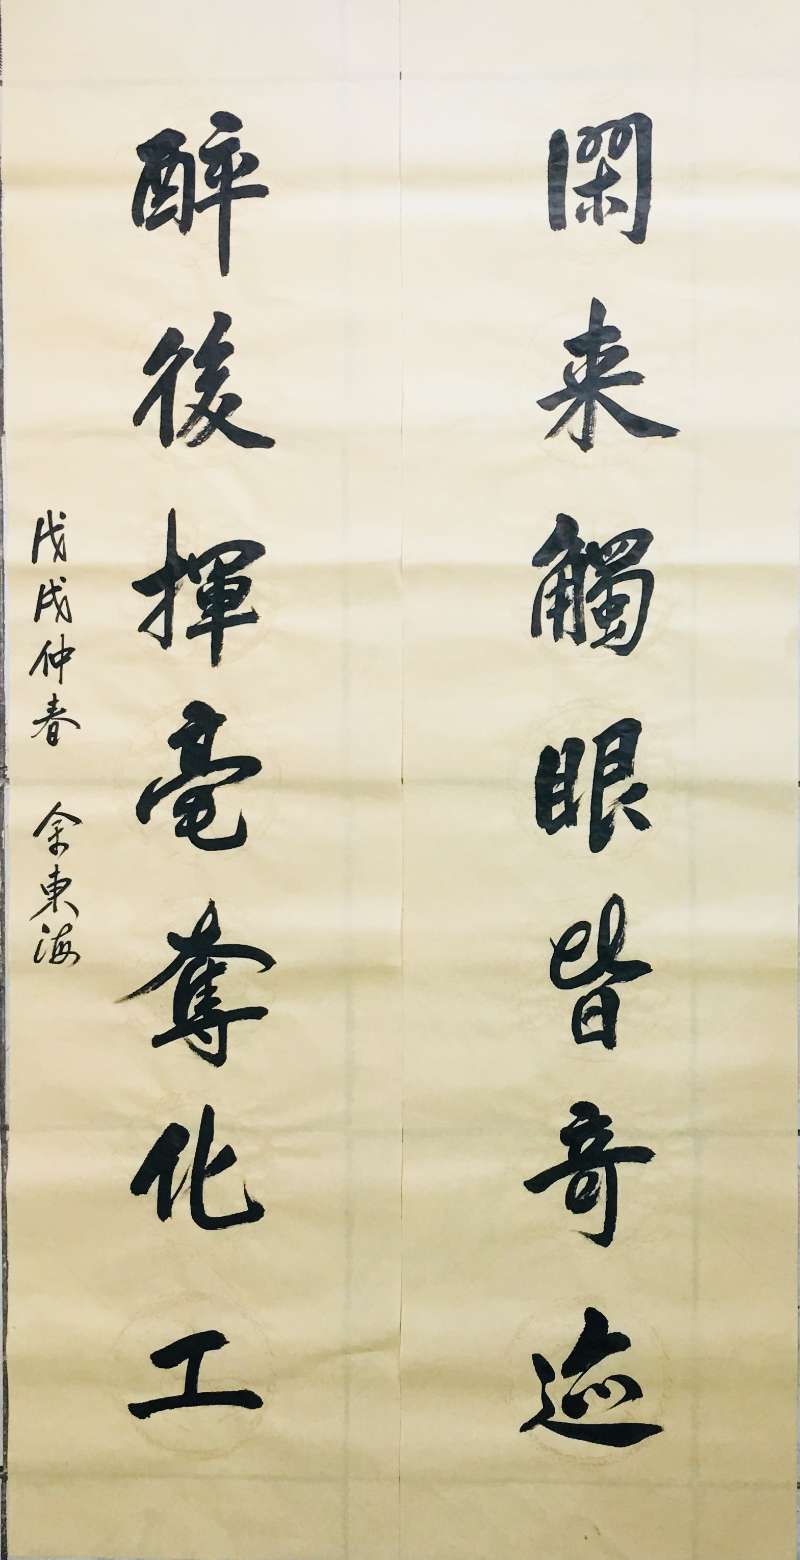 閑来觸眼皆奇迹
醉後揮毫奪化工
戊戌仲春 余東海